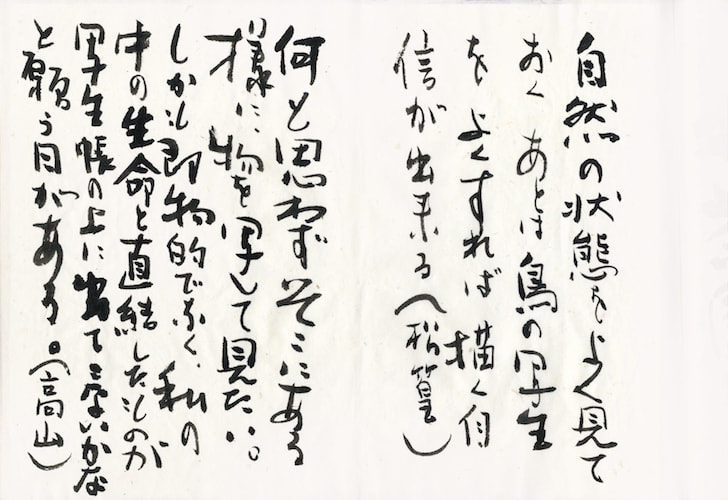 自然の状態をよく見て
おく あとは鳥の写生
をよくすれば描く自
信が出来る(松篁)
何も思わずそこにある
様に、物を写して見たい。
しかも即物的でなく、私の
中の生命と直結したものが
写生帳の上に出てこないかな
と願う日がある。(高山)